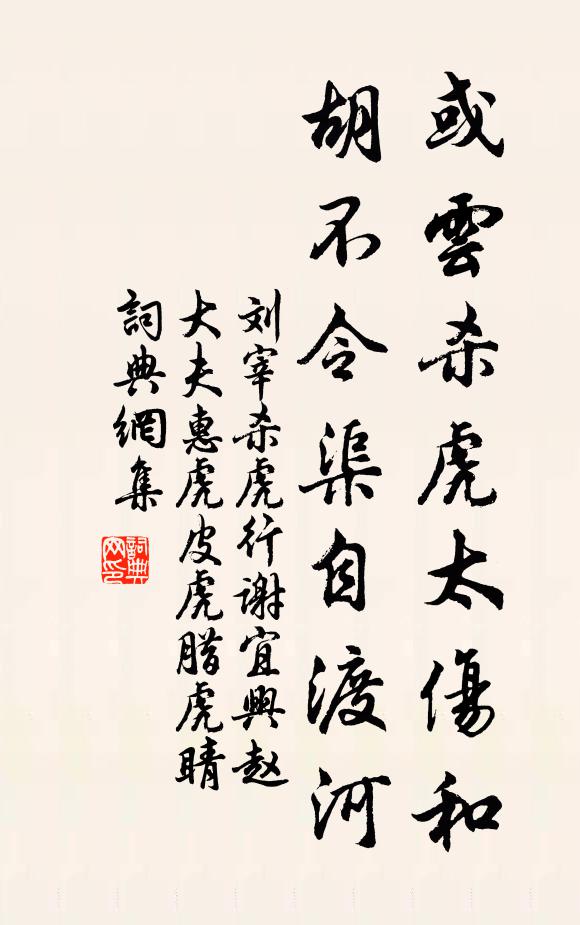 或雲杀虎太傷和
胡不令渠自渡河
刘宰杀虎行谢宜興赵
大夫惠虎皮虎腊虎睛
詞典網集
詞典
网印